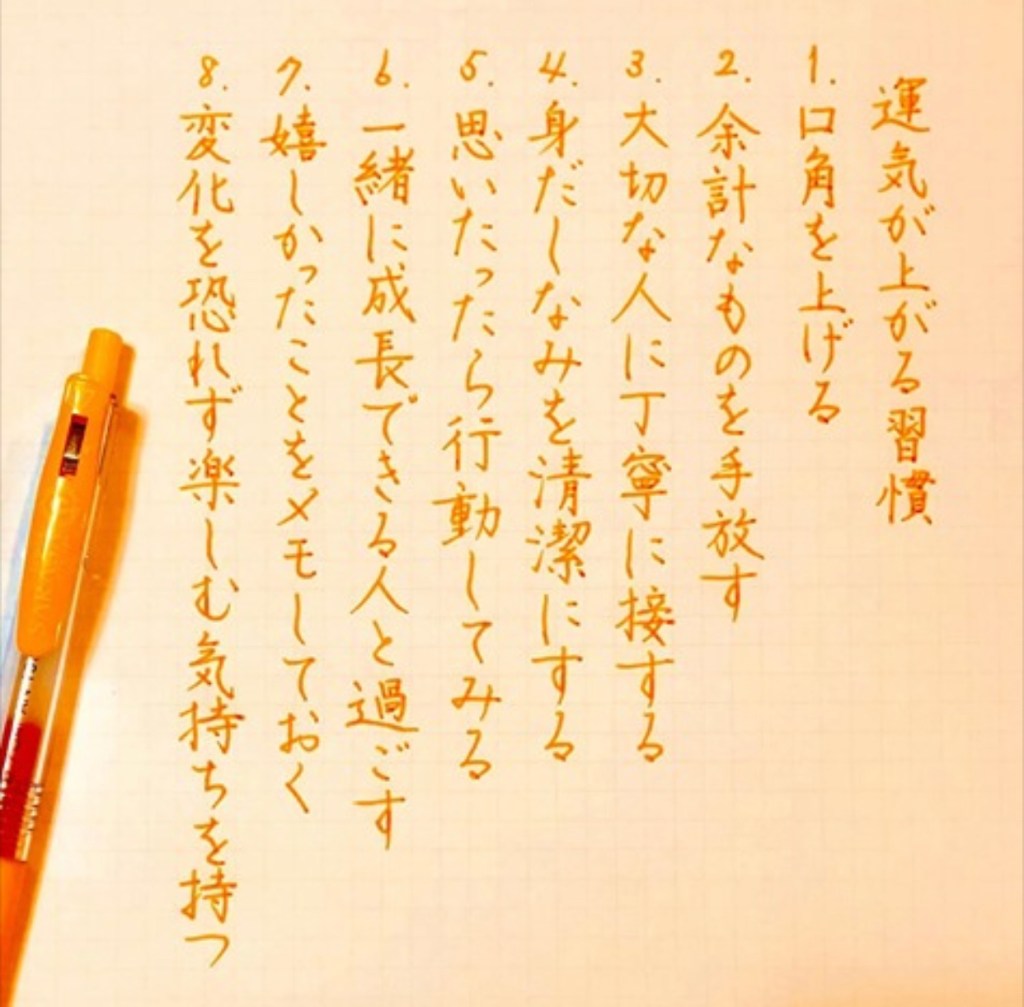 運気が上がる習慣
1. 口角を上げる
2. 余計なものを手放す
3. 大切な人に丁寧に接する
4. 身だしなみを清潔にする
5. 思いたったら行動してみる
6. 一緒に成長できる人と過ごす
7. 嬉しかったことをメモしておく
8. 変化を恐れず楽しむ気持ちを持つ